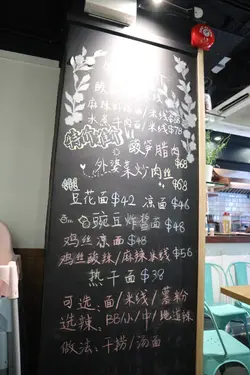 酸
麻辣 面/米线 $68
水煮牛肉面/米线 $78
酸笋腊肉
$68
外婆菜炒肉丝
$68
豆花面 $42 凉面 $46
豌豆炸酱面 $48
鸡丝凉面 $48
鸡丝酸辣/麻辣米线 $56
热干面 $38
可选：面/米线/薯粉
选辣：BB/小/中/地道辣
做法：干捞/汤面